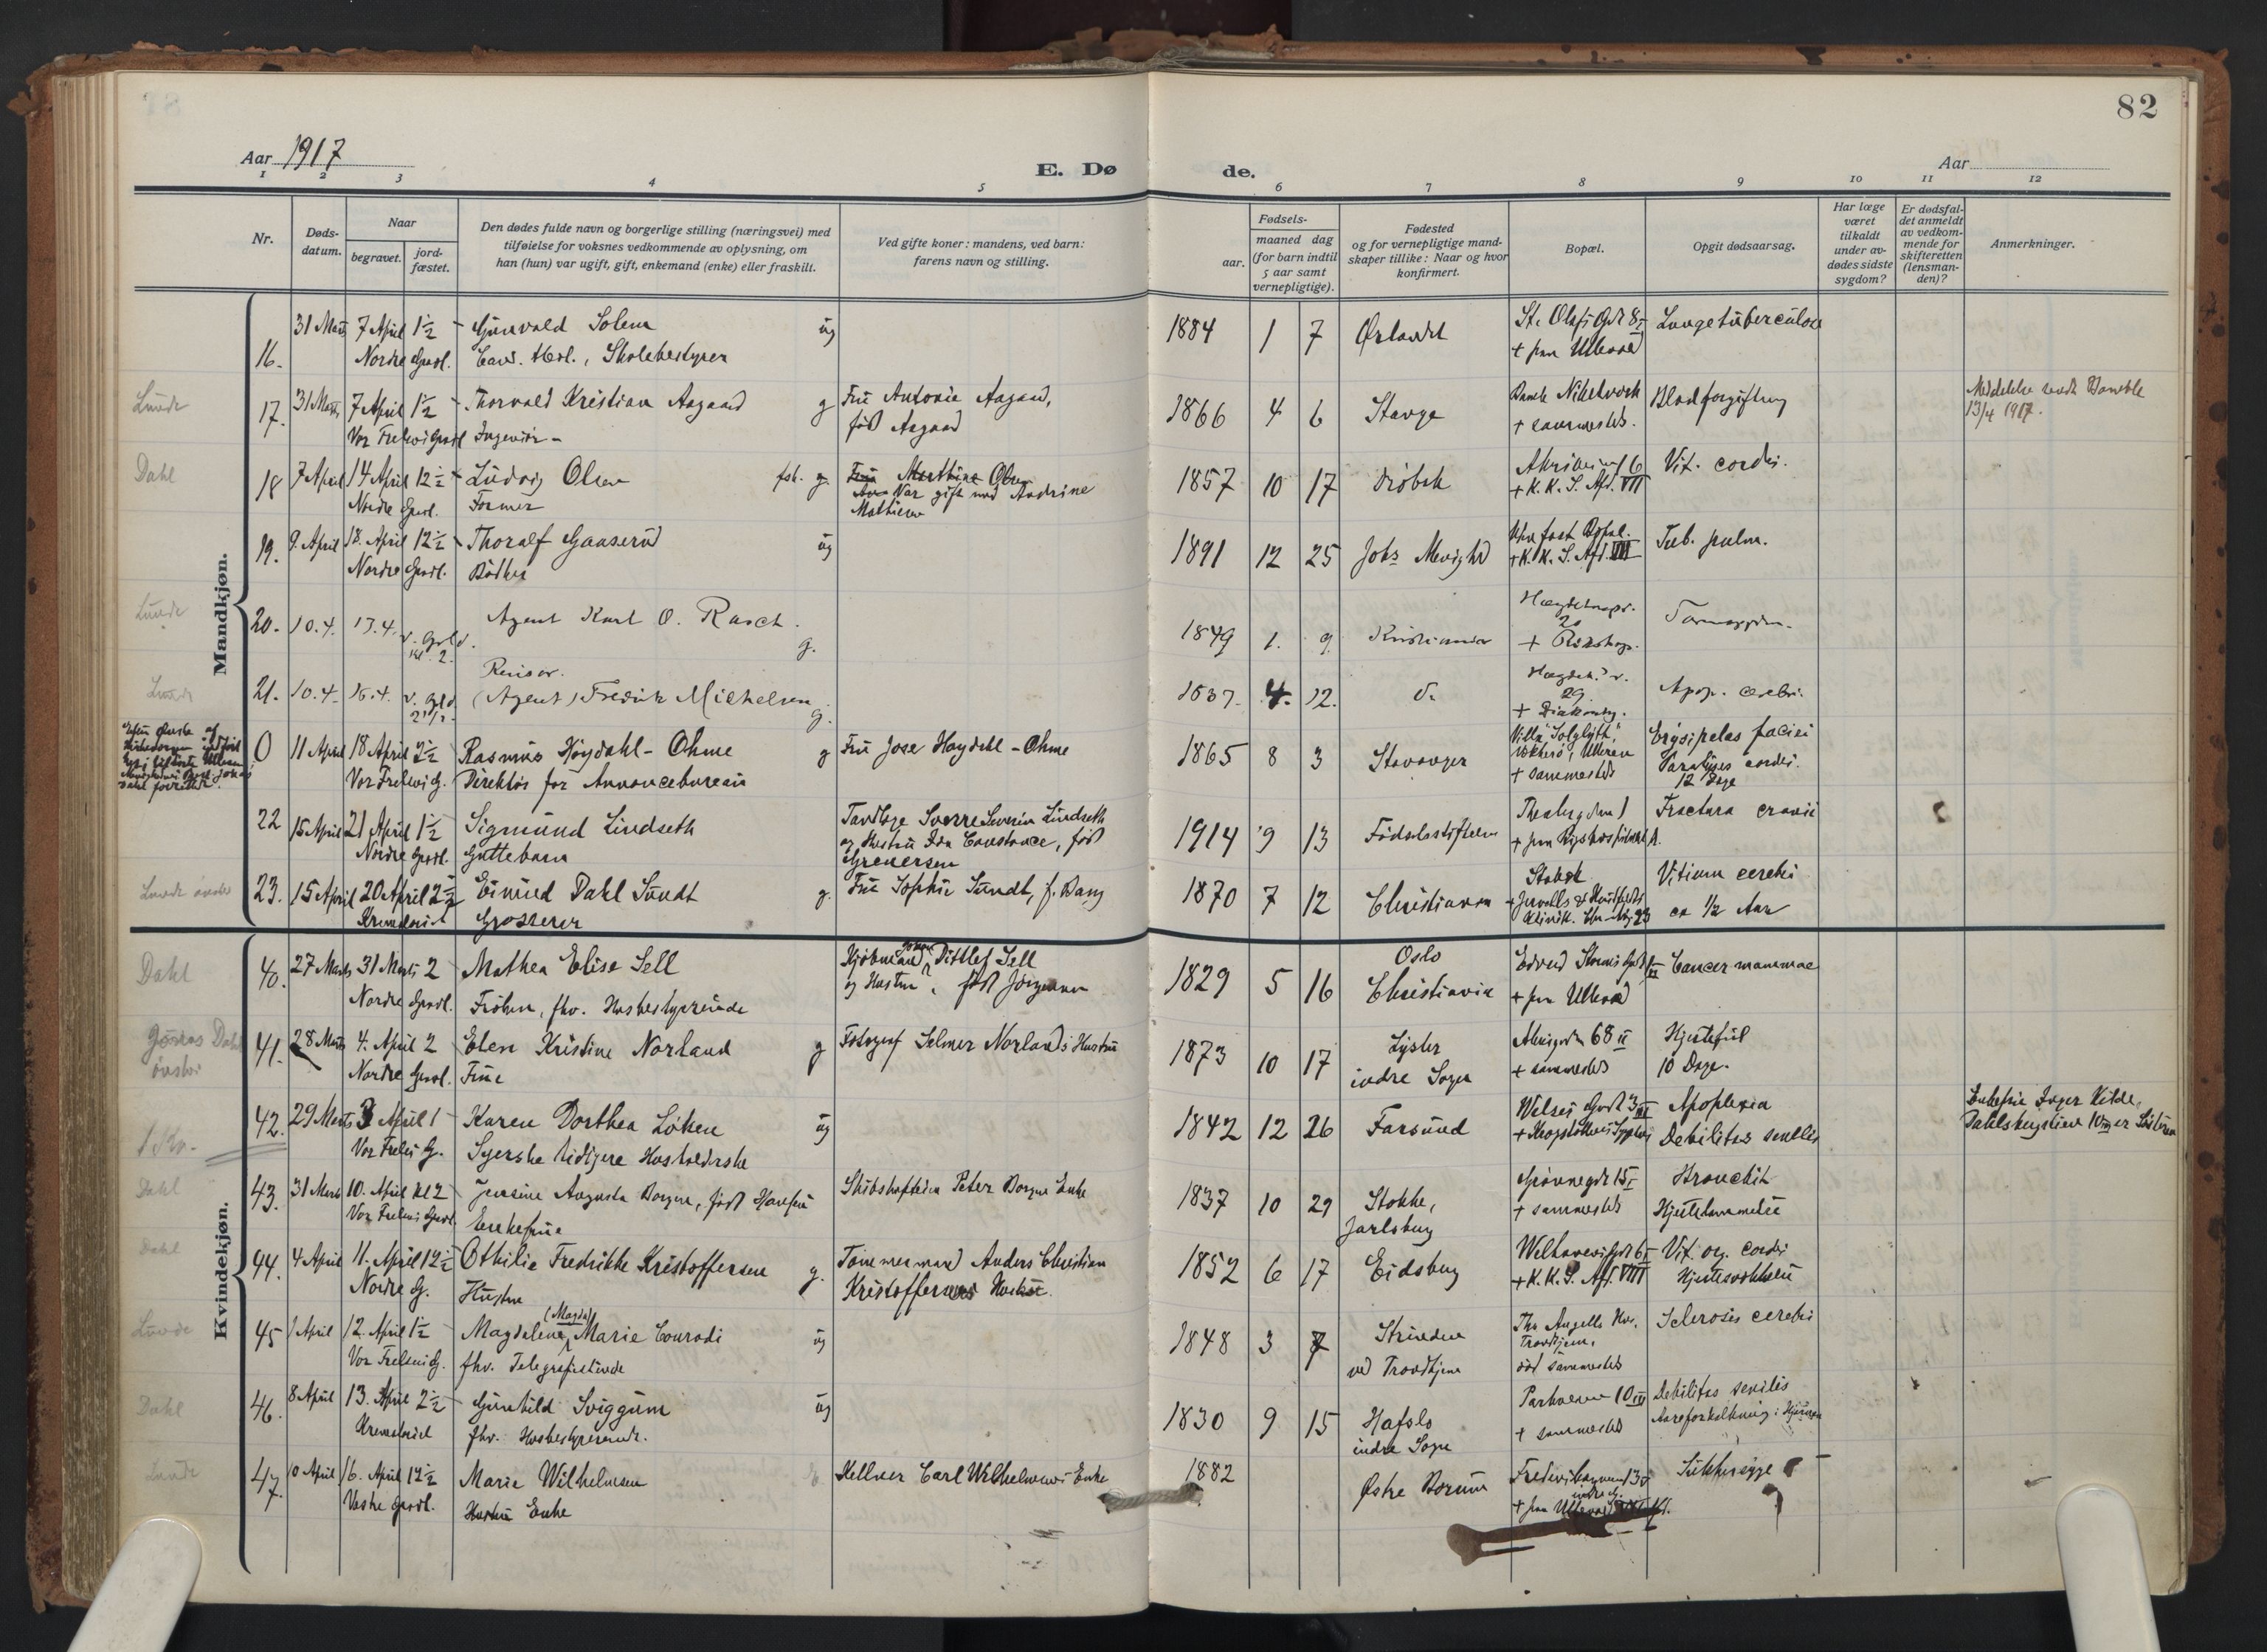 82
Aar 1917
E. Dø
de.
Aar
1 2 3 4 5 6 7 8 9 10 11 12
Nr.
Døds-
datum.
Naar
begravet.
jord-
fæstet.
Den dødes fulde navn og borgerlige stilling (næringsvei) med
tilføielse for voksnes vedkommende av oplysning, om
han (hun) var ugift, gift, enkemand (enke) eller fraskilt.
Ved gifte koner: mandens, ved barn:
farens navn og stilling.
Fødsels-
aar.
maaned dag
(for barn indtil
5 aar samt
vernepligtige).
Fødested
og for vernepligtige mand-
skaper tillike: Naar og hvor
konfirmert.
Bopæl.
Opgit dødsaarsag.
Har læge
været
tilkaldt
under av-
dødes sidste
sygdom?
Er dødsfal-
det anmeldt
av vedkom-
mende for
skifteretten
(lensman-
den)?
Anmerkninger.
Mandkjøn.
16. 31 Marts 7 April 1½ Gunvald Solem ug 1884 1 7 Ørlandet St. Olafs Gd 8 Lungetuberculose
Nordre Gravl. Cand. theol., Skolebestyrer + paa Ullevaal
Lunde 17. 31 Marts 7 April 1½ Thorvald Kristian Aagaard g Fru Antonie Aagaard, 1866 4 6 Stange Nikelverk Blodforgiftning Meddelelse sendt Bamble
Vor Frelsers Gravl Ingeniør født Aagaard + sammesteds. 13/4 1917.
Dahl 18 7 April 14 April 12½ Ludvig Olsen fsk. g. Fru Marthine Olsen 1857 10 17 Drøbak Akersveien 16 Vit. cordis.
Nordre Gravl. Former Var gift med Andrine + K. K. S. Afd. VII
Mathisen
19. 9. April 18. April 12½ Thoralf Gaaserud ug 1891 12 25 Johs Menighd Uden fast Bopæl. Tub. pulm.
Nordre Gravl. Bødker + K. K. S. Afd. VIII
Lunde 20. 10.4. 13.4. V. Grld. Agent Karl O. Rasch. g. 1849 1. 9. Kristiania Hægdehaugsv.
kl. 2. 20
+ Rikshosp.
Revisor.
Lunde 21. 10.4. 16.4. V. Grld. (Agent) Fredrik Michelsen g. 1837. 4. 12. d. Hægdeh. v. Apop. cerebri.
29
+ Diakonhj.
0 11 April 18 April 2½ Rasmus Høydahl-Ohme g Fru Jose Høydahl-Ohme 1865 8 3 Stavanger Villa "Solglytt", Erysipelas faciei
Vor Frelsers G. Direktør for Annoncebureau Ullern Paralyses cordis.
+ sammesteds 12 Dage
22 15 April 21 April 1½ Sigmund Lindseth Tandlæge Sverre Severin Lindseth 1914 9 13 Fødselsstiftelsen Fractura cranii
Nordre Gravl. Guttebarn og Hustru Ida Constance, født + paa Rigshospitalet
Grenersen
Lunde 23. 15 April 20 April 2½ Eivind Dahl Sundt g. Fru Sophie Sundt, f. Bang 1870 7 12 Christiania Stabek Vitium cerebri
Krematoriet Grosserer ca ½ Aar
Kvindekjøn.
Dahl 40. 27 Marts 31 Marts 2 Mathea Elise Sell Kjøbmand Dittlef Sell 1829 5 16 Oslo Edvard Storms Gd Cancer mammae
Nordre Gravl. Frøken, fhv. Husbestyrerinde og Hustru, født Jørgensen Christiania + paa Ullevaal
Jonas Dahl 41. 28 Marts 4. April 2 Elen Kristine Norland g Fotograf Selmer Norlands Hustru 1873 10 17 Lyster 68 II Hjertefeil
ønskes Nordre Gravl. Frue indre Sogn + sammesteds 10 Dage.
42. 29 Marts 3 April 1 Karen Dorthea Løken ug 1842 12 26 Farsund Welses Gd 3 III Apoplexia Enkefru Inger Kilde,
1 Kr. Vor Frelsers G. Syerske tidligere Husholderske Debilitas senilis Dahlsbergstien 10 er Søster
Dahl 43. 31 Marts 10. April kl 2 Jensine Augusta Borgen, født Hansen Skibskaptein Peter Borgens Enke 1837 10 29 Stokke, Grønnegd 15 Bronchit
Vor Frelsers Gravl. Enkefrue Jarlsberg + sammesteds Hjertelammelse
Dahl 44. 4 April 11. April 12½ Othilie Fredrikke Kristoffersen g. Tømmermand Anders Christian 1852 6 17 Eidsberg Welhavens Gd 6 Vit. org. cordis
Nordre G. Hustru Kristoffersens Hustru + K. K. S. Afd. VIII Hjertesvækkelse
Lunde 45 1 April 12. April 1½ Magdalena (Magda) Marie Conradi ug 1848 3 7 Strinden Tho Angells Hus, Sclerosis cerebri
Vor Frelsers G. fhv. Telegrafistinde ved Trondhjem Trondhjem,
død sammesteds
Dahl 46. 8 April 13. April 2½ Gunhild Sviggum ug 1830 9 15 Hafslo Parkveien 10 III Debilitas senilis
Krematoriet fhv. Husbestyrerinde. indre Sogn + sammesteds Aareforkalkning i Hjernen
Lunde 47. 10 April 16. April 12½ Marie Wilhelmsen E. Kellner Carl Wilhelmsens Enke 1882 Østre Bærum 13 Sukkersyge
Vestre Gravl. Hustru Enke + paa Ullevaal